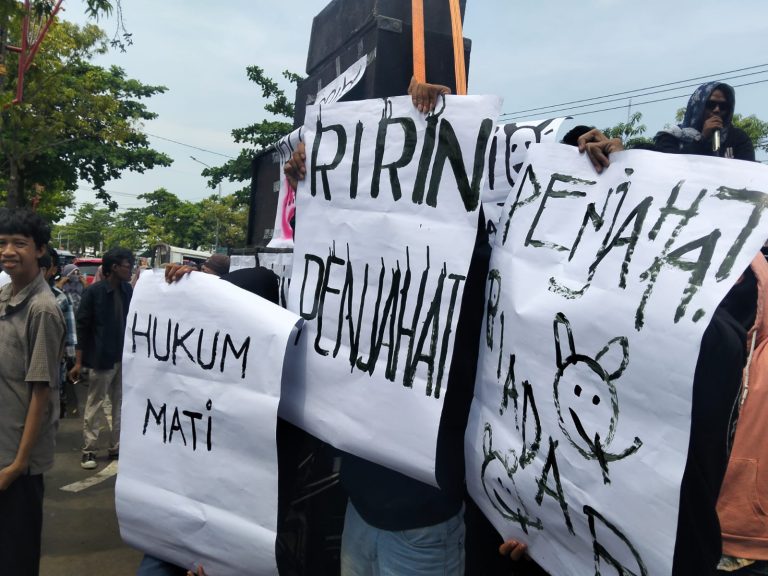 HUKUM
MATI
RIRIN
PENJAHAT
PENJAHAT
BIADAB